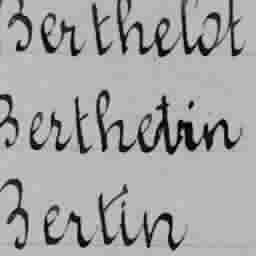 Berthelot
Berthetrin
Bertin